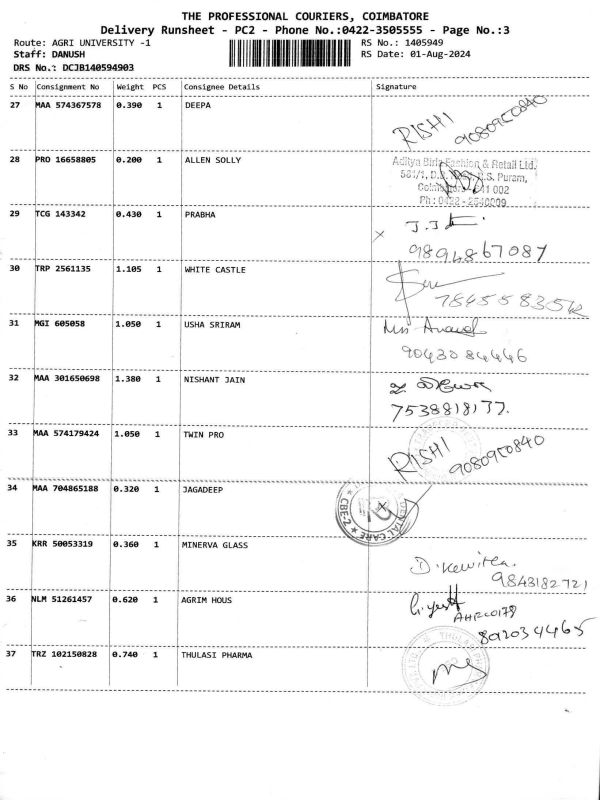 THE PROFESSIONAL COURIERS, COIMBATORE
Delivery Runsheet - PC2 - Phone No.:0422-3505555 - Page No.:3
Route: AGRI UNIVERSITY -1
RS No.: 1405949
Staff: DANUSH
RS Date: 01-Aug-2024
DRS No.: DCJB140594903
S No Consignment No Weight PCS Consignee Details Signature
27 MAA 574367578 0.390 1 DEEPA
RISHI
9080950840
28 PRO 16658805 0.200 1 ALLEN SOLLY
Aditya Birla Fashion & Retail Ltd.
581/1, D.B. R.S. Puram,
Coimbatore 641 002
Ph : 0422
29 TCG 143342 0.430 1 PRABHA
9894867087
30 TRP 2561135 1.105 1 WHITE CASTLE
31 MGI 605058 1.050 1 USHA SRIRAM
9043084446
32 MAA 301650698 1.380 1 NISHANT JAIN
7538818177.
33 MAA 574179424 1.050 1 TWIN PRO
RISHI
9080950840
34 MAA 704865188 0.320 1 JAGADEEP
DENTAL CARE * CBE-2 *
35 KRR 50053319 0.360 1 MINERVA GLASS
9843182721
36 NLM 51261457 0.620 1 AGRIM HOUS
8012034465
37 TRZ 102150828 0.740 1 THULASI PHARMA